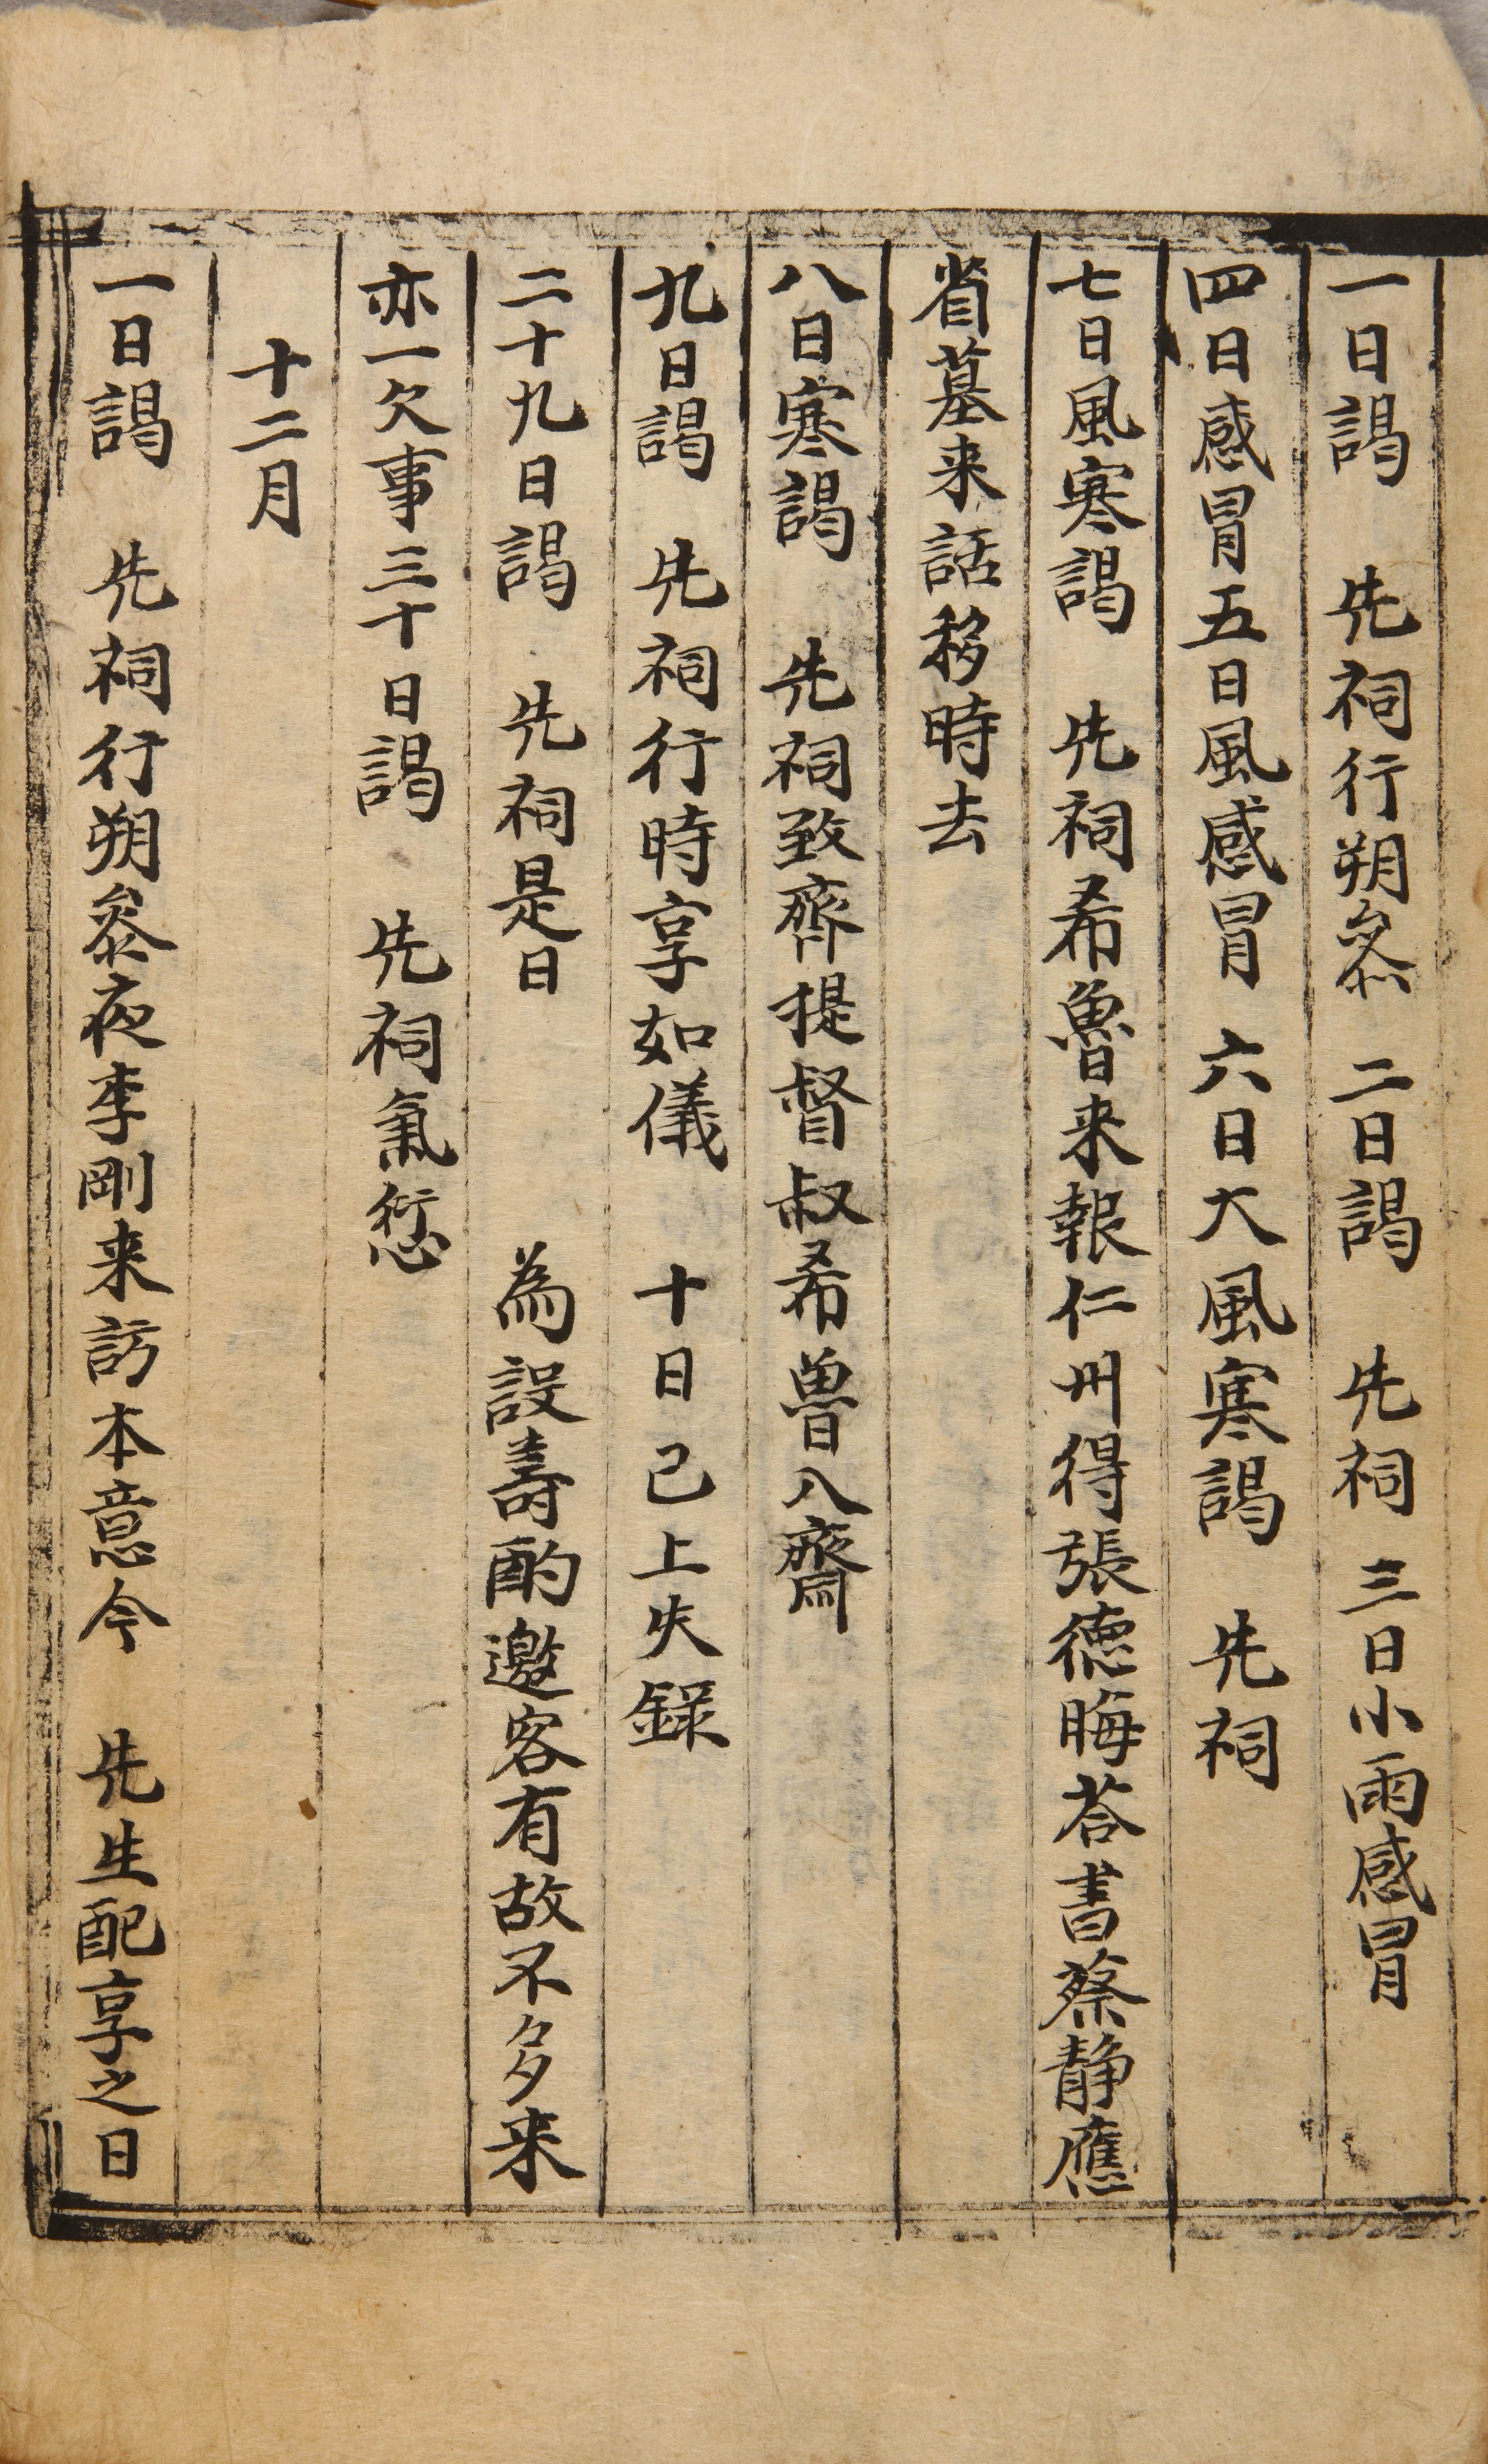 一日謁　先祠行朔叅　二日謁　先祠　三日小雨感冒
四日感冒五日風感冒　六日大風寒謁　先祠
七日風寒謁　先祠希魯来報仁州得張德晦荅書蔡靜應
省墓来話移時去
八日寒謁　先祠致齊提督叔希魯入齋
九日謁　先祠行時享如儀　十日已上失錄
二十九日謁　先祠是日　為設壽酌邀客有故不多来
亦一欠事三十日謁　先祠氣愆
十二月
一日謁　先祠行朔叅夜李剛来訪本意今　先生配享之日